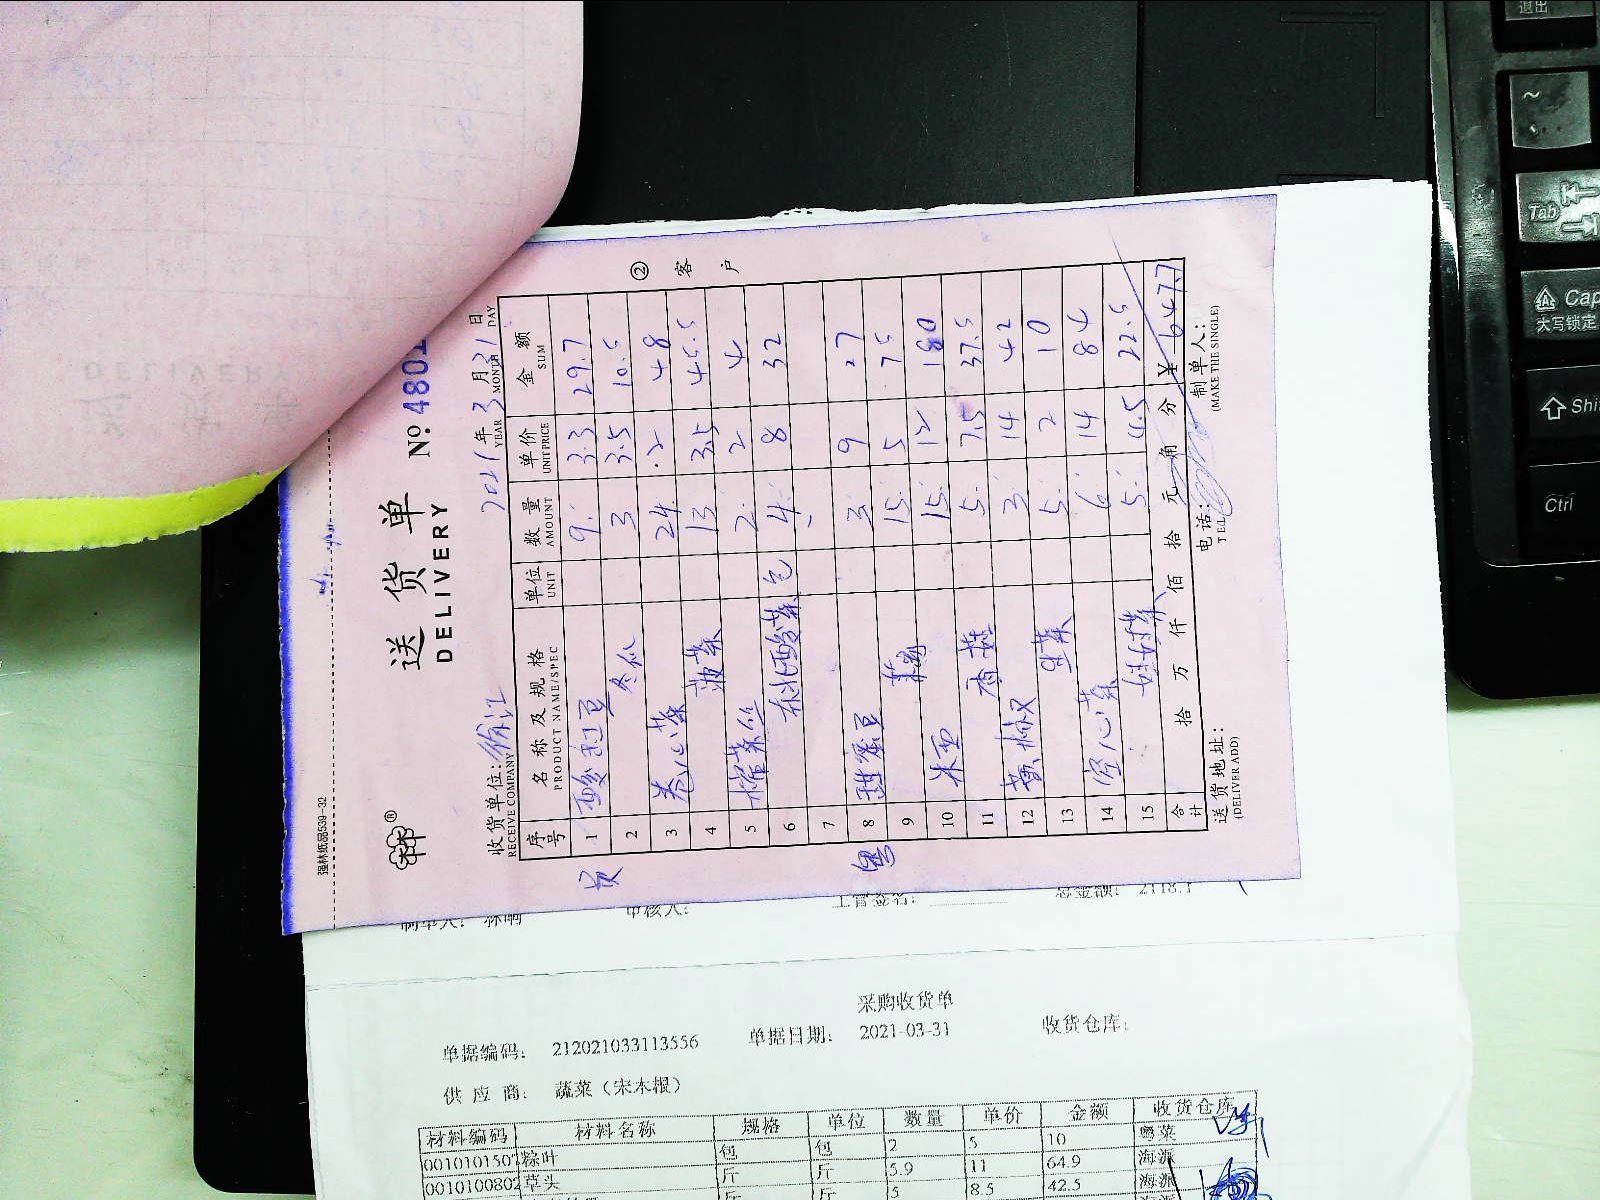 强林纸品539-32
送货单
DELIVERY
№ 4801
2021年3月31日
YEAR MONTH DAY
收货单位: 徐江
RECEIVE COMPANY
② 客户
序号 名称及规格 单位 数量 单价 金额
PRODUCT NAME/SPEC UNIT AMOUNT UNITPRICE SUM
1 9 3.3 29.7
2 冬瓜 3 3.5 10.5
3 卷心菜 24 2 48
4 菠菜 13 3.5 45.5
5 榨菜丝 2 2 4
6 东北酸菜 包 4 8 32
7
8 甜蜜豆 3 9 27
9 15 5 75
10 15 12 180
11 香菇 5 7.5 37.5
12 3 14 42
13 生菜 5 2 10
14 空心菜 6 14 84
15 娃娃菜 5 4.5 22.5
合计 拾 万 仟 佰 拾 元 角 分 ¥ 647.7
送货地址: 电话: 制单人:
(DELIVER ADD) TEL (MAKE THE SINGLE)
制单人: 审核人: 主管签名: 总金额: 2118.1
采购收货单
单据编码: 212021033113556 单据日期: 2021-03-31 收货仓库:
供应商: 蔬菜(宋木根)
材料编码 材料名称 规格 单位 数量 单价 金额 收货仓库
001010150 粽叶 包 包 2 5 10 粤菜
0010100802 草头 斤 斤 5.9 11 64.9 海派
斤 斤 5 8.5 42.5 海派
~
Tab
Cap
大写锁定
Shi
Ctrl
退出